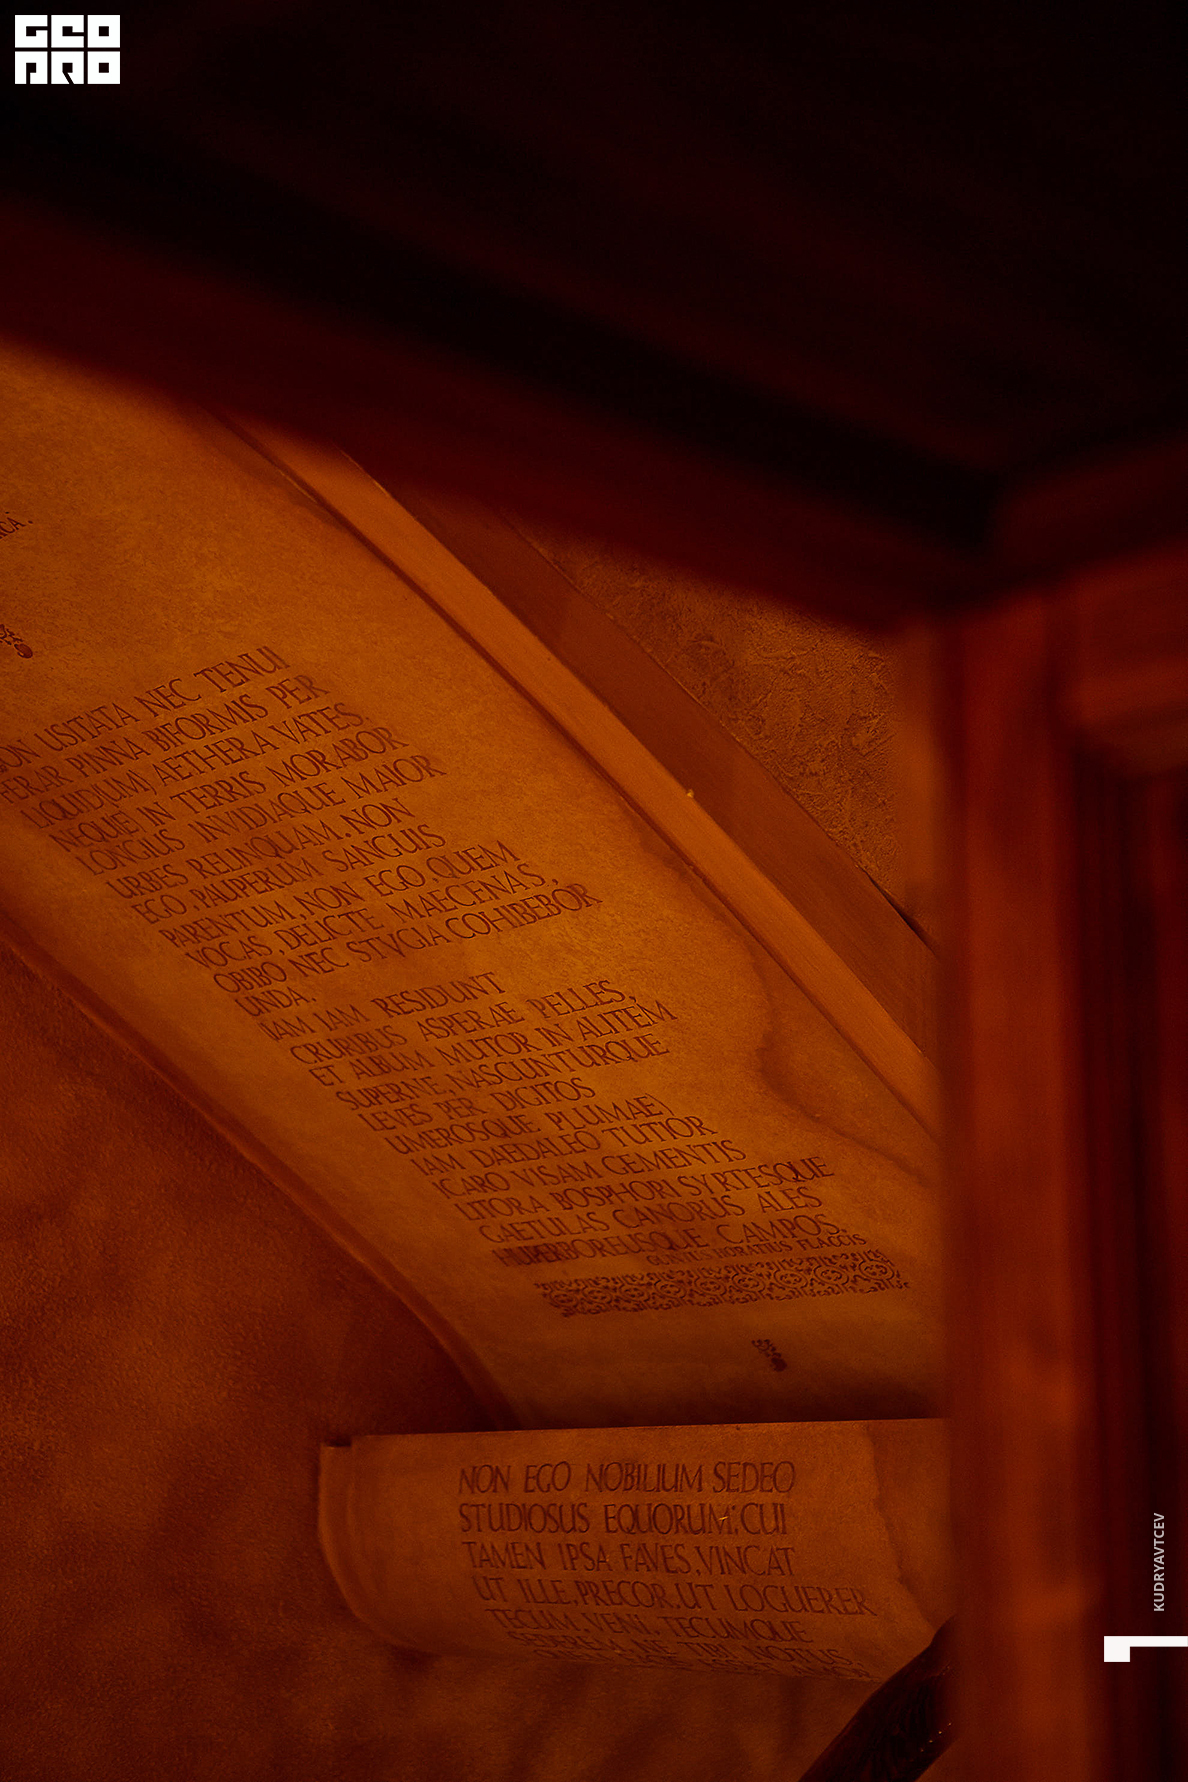 GEO
PRO
ON USITATA NEC TENUI
FERAR PINNA BIFORMIS PER
LIQUIDUM AETHERA VATES,
NEQUE IN TERRIS MORABOR
LONGIUS INVIDIAQUE MAIOR
URBES RELINQUAM. NON
EGO, PAUPERUM SANGUIS
PARENTUM, NON EGO, QUEM
VOCAS, DELICTE MAECENAS,
OBIBO NEC STVGIA COHIBEBOR
UNDA.
IAM IAM RESIDUNT
CRURIBUS ASPERAE PELLES,
ET ALBUM MUTOR IN ALITEM
SUPERNE, NASCUNTURQUE
LEVES PER DIGITOS
UMEROSQUE PLUMAE;
IAM DAEDALEO TUTIOR
ICARO VISAM GEMENTIS
LITORA BOSPHORI SYRTESQUE
GAETULAS CANORUS ALES
HUPERBOREUSQUE CAMPOS.
QUINTUS HORATIUS FLACCIS
NON EGO NOBILIUM SEDEO
STUDIOSUS EQUORUM; CUI
TAMEN IPSA FAVES, VINCAT
UT ILLE, PRECOR. UT LOGUERER
TECUM, VENI, TECUMQUE
SEDEREM, NE TIBI NOTUS
KUDRYAVTCEV